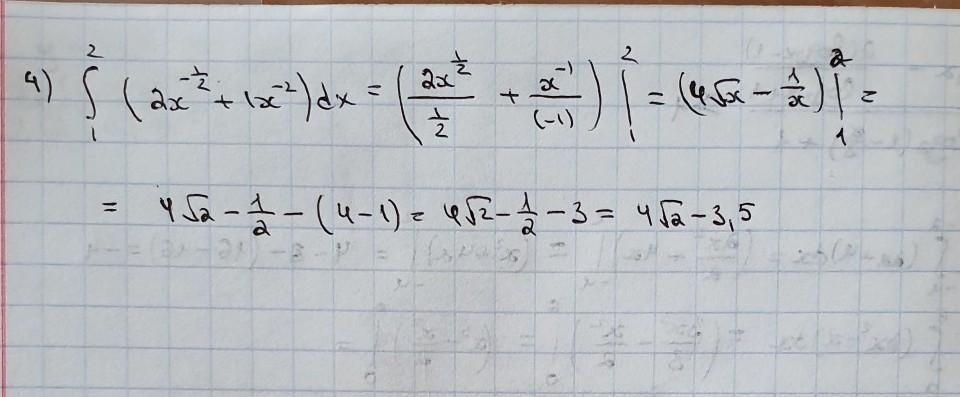 4) ∫₁² (2x^(-1/2) + 1x^(-2)) dx = (2x^(1/2)/(1/2) + x^(-1)/(-1)) |₁² = (4√x - 1/x) |₁² =
= 4√2 - 1/2 - (4-1) = 4√2 - 1/2 - 3 = 4√2 - 3,5